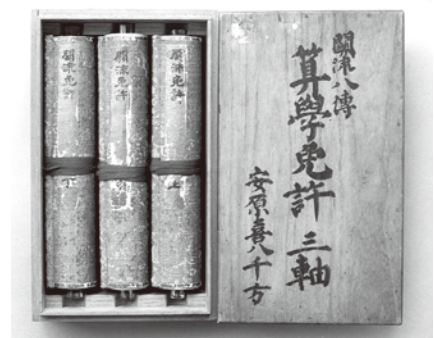 關流八傳
算學免許 三軸
安原喜八千方
關流免許
上
關流免許
關流免許
下